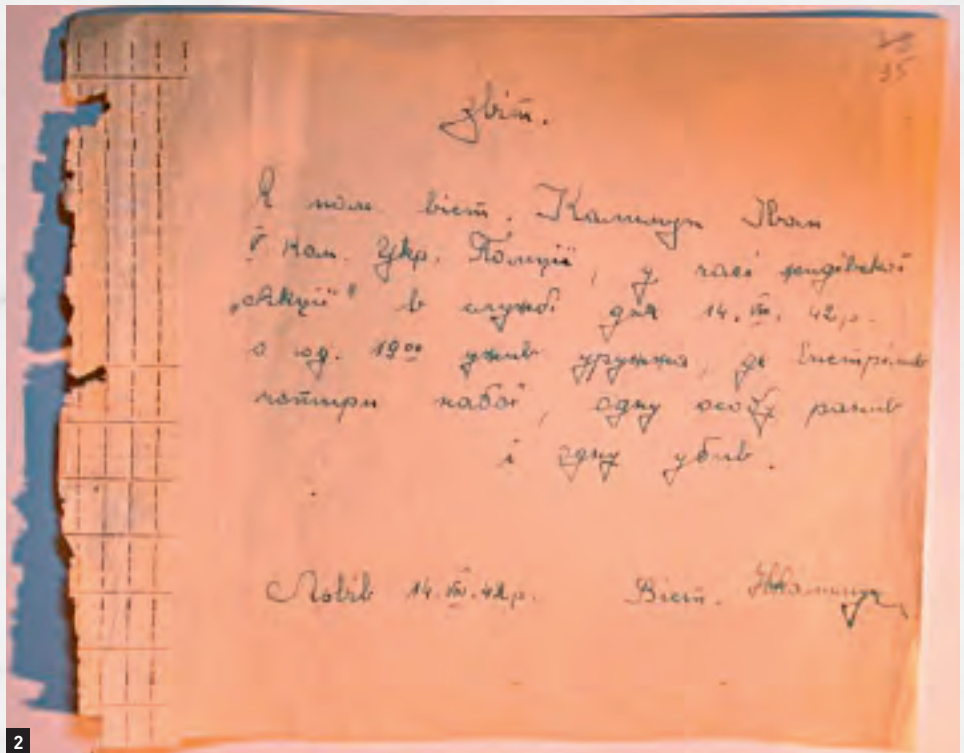 35
Звіт.
Я віст. Калимун Іван
V ком. Укр. Поліції, у часі жидівскої
„Акції" в службі дня 14. VIII. 42 р.
о год. 19 00 ужив уружжа, де вистрілив
чотири набої, одну особу ранив
і одну убив.
Львів 14. VIII. 42 р. Віст. ІКалимун
2